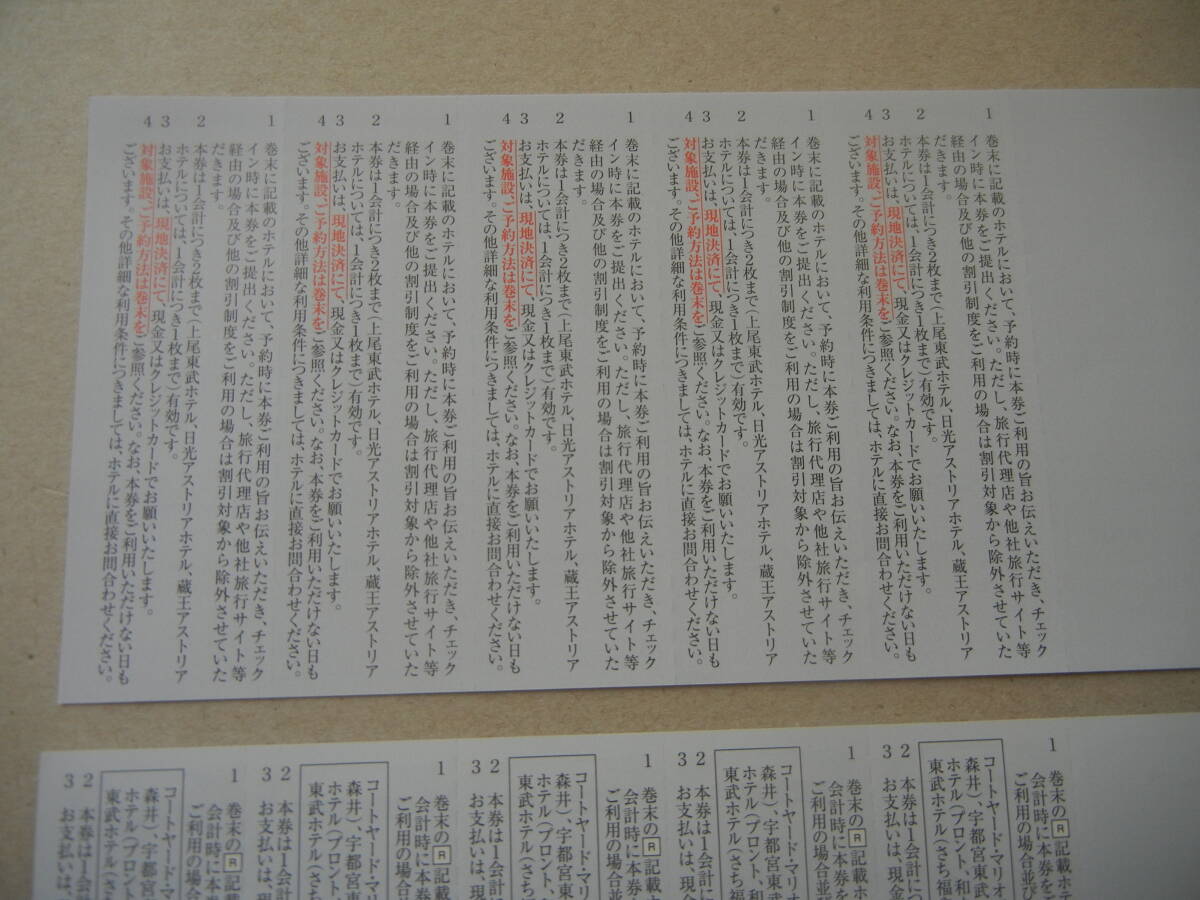 1 巻末に記載のホテルにおいて、予約時に本券ご利用の旨お伝えいただき、チェック
イン時に本券をご提出ください。ただし、旅行代理店や他社旅行サイト等
経由の場合及び他の割引制度をご利用の場合は割引対象から除外させていた
だきます。
2 本券は1会計につき2枚まで(上尾東武ホテル、日光アストリアホテル、蔵王アストリア
ホテルについては、1会計につき1枚まで)有効です。
3 お支払いは、現地決済にて、現金又はクレジットカードでお願いいたします。
4 対象施設、ご予約方法は巻末をご参照ください。なお、本券をご利用いただけない日も
ございます。その他詳細な利用条件につきましては、ホテルに直接お問合わせください。
1 巻末に記載のホテルにおいて、予約時に本券ご利用の旨お伝えいただき、チェック
イン時に本券をご提出ください。ただし、旅行代理店や他社旅行サイト等
経由の場合及び他の割引制度をご利用の場合は割引対象から除外させていた
だきます。
2 本券は1会計につき2枚まで(上尾東武ホテル、日光アストリアホテル、蔵王アストリア
ホテルについては、1会計につき1枚まで)有効です。
3 お支払いは、現地決済にて、現金又はクレジットカードでお願いいたします。
4 対象施設、ご予約方法は巻末をご参照ください。なお、本券をご利用いただけない日も
ございます。その他詳細な利用条件につきましては、ホテルに直接お問合わせください。
1 巻末に記載のホテルにおいて、予約時に本券ご利用の旨お伝えいただき、チェック
イン時に本券をご提出ください。ただし、旅行代理店や他社旅行サイト等
経由の場合及び他の割引制度をご利用の場合は割引対象から除外させていた
だきます。
2 本券は1会計につき2枚まで(上尾東武ホテル、日光アストリアホテル、蔵王アストリア
ホテルについては、1会計につき1枚まで)有効です。
3 お支払いは、現地決済にて、現金又はクレジットカードでお願いいたします。
4 対象施設、ご予約方法は巻末をご参照ください。なお、本券をご利用いただけない日も
ございます。その他詳細な利用条件につきましては、ホテルに直接お問合わせください。
1 巻末に記載のホテルにおいて、予約時に本券ご利用の旨お伝えいただき、チェック
イン時に本券をご提出ください。ただし、旅行代理店や他社旅行サイト等
経由の場合及び他の割引制度をご利用の場合は割引対象から除外させていた
だきます。
2 本券は1会計につき2枚まで(上尾東武ホテル、日光アストリアホテル、蔵王アストリア
ホテルについては、1会計につき1枚まで)有効です。
3 お支払いは、現地決済にて、現金又はクレジットカードでお願いいたします。
4 対象施設、ご予約方法は巻末をご参照ください。なお、本券をご利用いただけない日も
ございます。その他詳細な利用条件につきましては、ホテルに直接お問合わせください。
1 巻末に記載のホテルにおいて、予約時に本券ご利用の旨お伝えいただき、チェック
イン時に本券をご提出ください。ただし、旅行代理店や他社旅行サイト等
経由の場合及び他の割引制度をご利用の場合は割引対象から除外させていた
だきます。
2 本券は1会計につき2枚まで(上尾東武ホテル、日光アストリアホテル、蔵王アストリア
ホテルについては、1会計につき1枚まで)有効です。
3 お支払いは、現地決済にて、現金又はクレジットカードでお願いいたします。
4 対象施設、ご予約方法は巻末をご参照ください。なお、本券をご利用いただけない日も
ございます。その他詳細な利用条件につきましては、ホテルに直接お問合わせください。
1 巻末のR記載ホテ
会計時に本券をご
ご利用の場合並び
コートヤード・マリオ
森井)、宇都宮東武
ホテル(プロント、和
東武ホテル(さち福
2 本券は1会計につ
3 お支払いは、現金
1 巻末のR記載ホ
会計時に本券を
ご利用の場合並
コートヤード・マリオ
森井)、宇都宮東武
ホテル(プロント、和
東武ホテル(さち福
2 本券は1会計に
3 お支払いは、現金
1 巻末のR記載
会計時に本券
ご利用の場合
コートヤード・マリ
森井)、宇都宮東
ホテル(プロント、
東武ホテル(さち
2 本券は1会計
3 お支払いは、現
1 巻末のR記載
会計時に本券
ご利用の場合
コートヤード・マリ
森井)、宇都宮東
ホテル(プロント
東武ホテル(さ
2 本券は1会計
3 お支払いは、
1 巻末のR記
会計時に本
ご利用の場
コートヤード・マリ
森井)、宇都宮
ホテル(プロン
東武ホテル(さ
2 本券は1会
3 お支払いは、